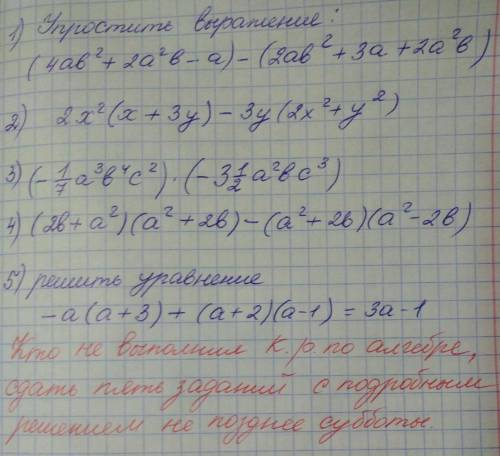 1) Упростить выражение:
(4ав² + 2а²в - а) - (2ав² + 3а + 2а²в)
2) 2x²(x + 3y) - 3y(2x² + y²)
3) (- 1/7 а³в⁴с²) · (- 3 1/2 а²вс³)
4) (2в + а²)(а² + 2в) - (а² + 2в)(а² - 2в)
5) решить уравнение
-а(а + 3) + (а + 2)(а - 1) = 3а - 1
Кто не выполнил к. р. по алгебре,
сдать пять заданий с подробным
решением не позднее субботы.